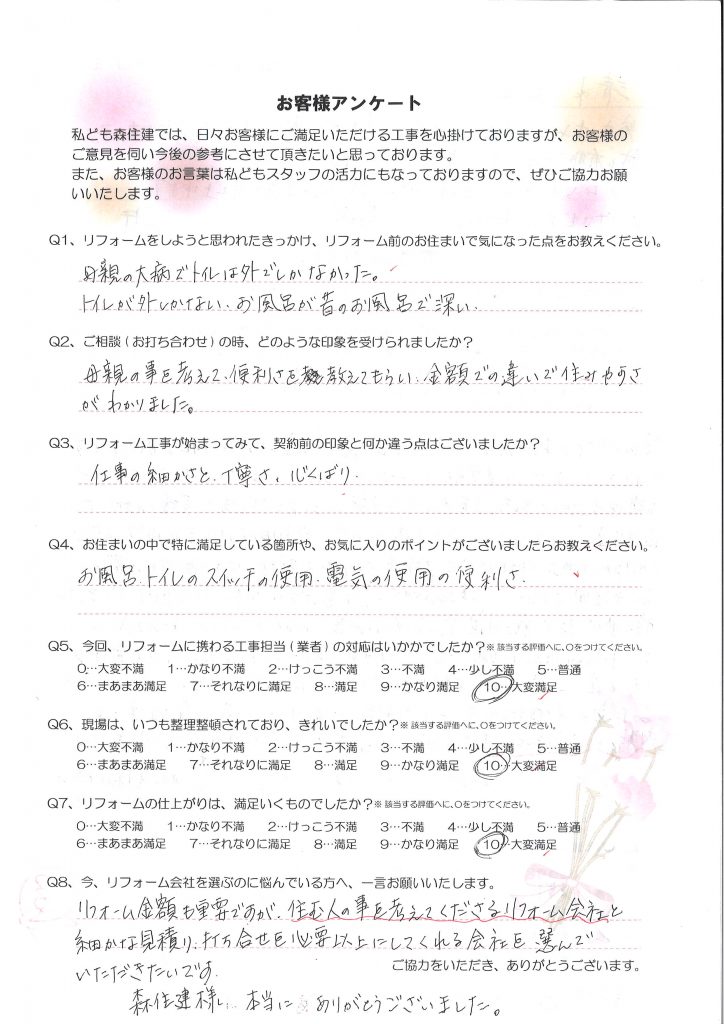 お客様アンケート
私ども森住建では、日々お客様にご満足いただける工事を心掛けておりますが、お客様の
ご意見を伺い今後の参考にさせて頂きたいと思っております。
また、お客様のお言葉は私どもスタッフの活力にもなっておりますので、ぜひご協力お願
いいたします。
Q1、リフォームをしようと思われたきっかけ、リフォーム前のお住まいで気になった点をお教えください。
母親の大病でトイレは外でしかなかった。
トイレが外しかない、お風呂が昔のお風呂で深い、
Q2、ご相談(お打ち合わせ)の時、どのような印象を受けられましたか?
母親の事を考えて、便利さを教えてもらい、金額での違いで住みやすさ
がわかりました。
Q3、リフォーム工事が始まってみて、契約前の印象と何か違う点はございましたか?
仕事の細かさと、丁寧さ、心くばり、
Q4、お住まいの中で特に満足している箇所や、お気に入りのポイントがございましたらお教えください。
お風呂、トイレのスイッチの使用、電気の使用の便利さ、
Q5、今回、リフォームに携わる工事担当(業者)の対応はいかかでしたか?※ 該当する評価へに、○をつけてください。
0…大変不満 1…かなり不満 2…けっこう不満 3…不満 4…少し不満 5…普通
6…まあまあ満足 7…それなりに満足 8…満足 9…かなり満足 10…大変満足
Q6、現場は、いつも整理整頓されており、きれいでしたか?※ 該当する評価へに、○をつけてください。
0…大変不満 1…かなり不満 2…けっこう不満 3…不満 4…少し不満 5…普通
6…まあまあ満足 7…それなりに満足 8…満足 9…かなり満足 10…大変満足
Q7、リフォームの仕上がりは、満足いくものでしたか?※ 該当する評価へに、○をつけてください。
0…大変不満 1…かなり不満 2…けっこう不満 3…不満 4…少し不満 5…普通
6…まあまあ満足 7…それなりに満足 8…満足 9…かなり満足 10…大変満足
Q8、今、リフォーム会社を選ぶのに悩んでいる方へ、一言お願いいたします。
リフォーム金額も重要ですが、住む人の事を考えてくださるリフォーム会社と
細かな見積り、打ち合せを必要以上にしてくれる会社を選んで
いただきたいです。
ご協力をいただき、ありがとうございます。
森住建様、本当にありがとうございました。